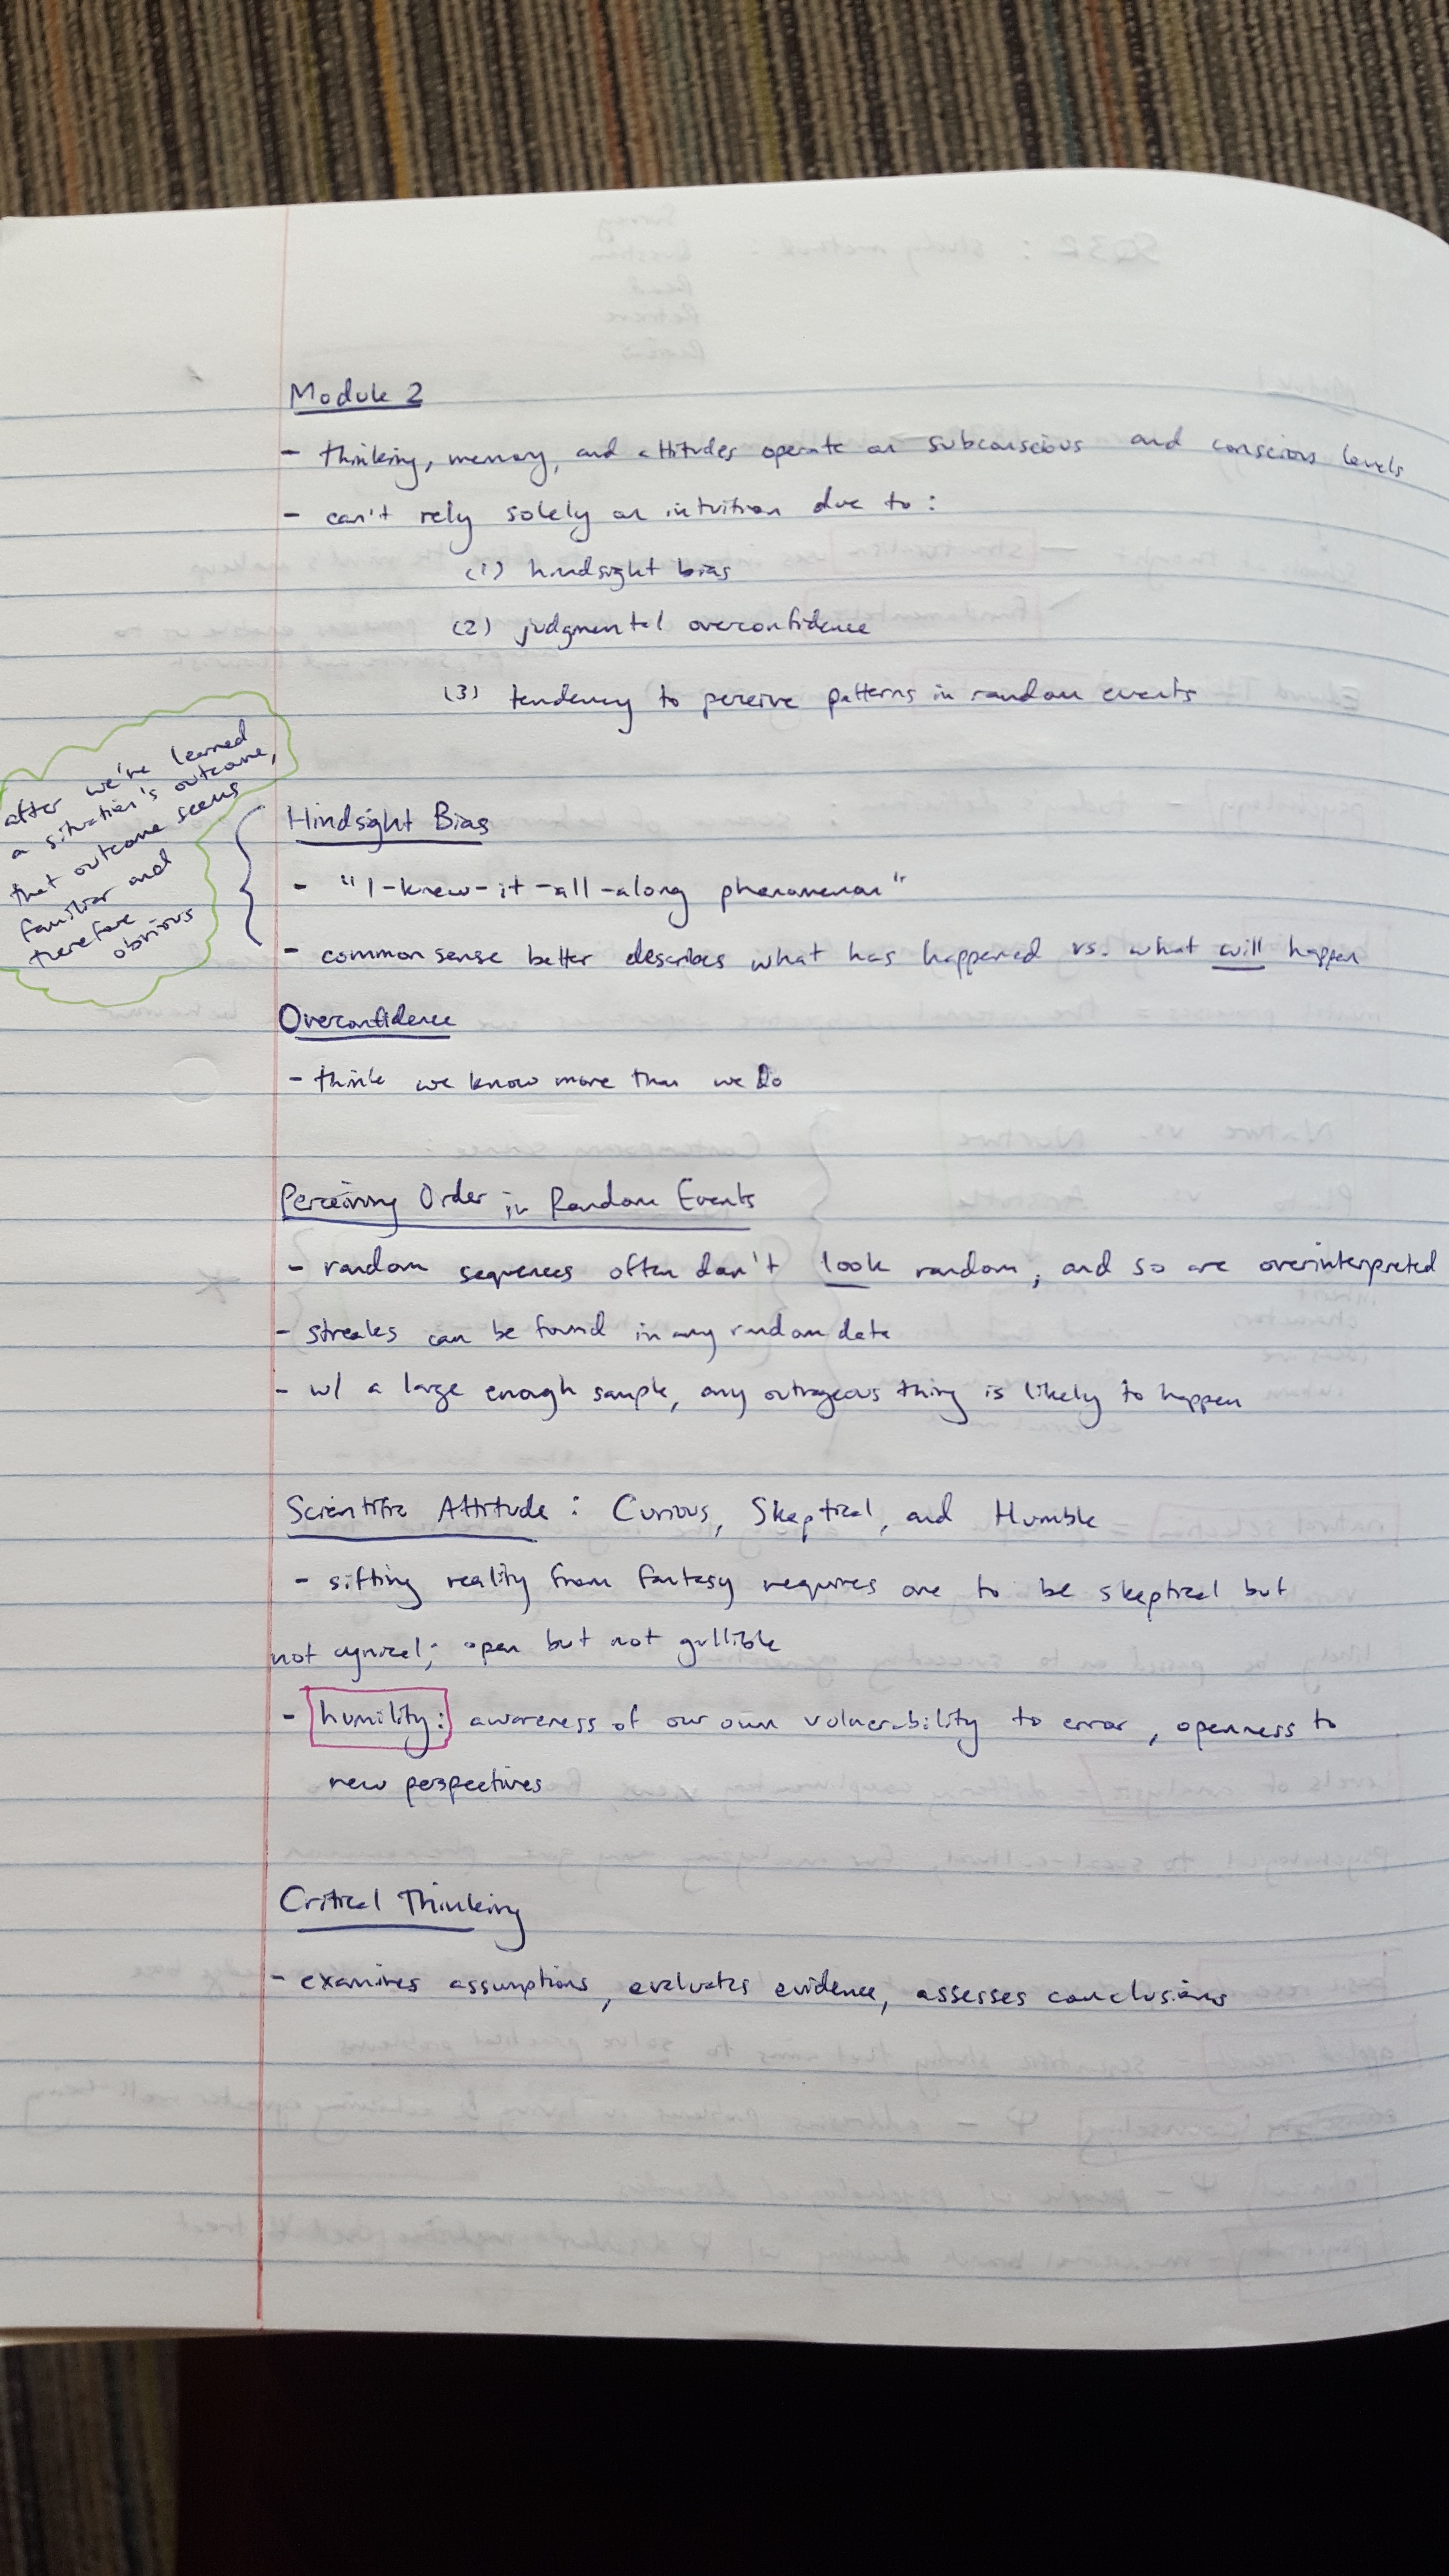 Module 2
- thinking, memory, and attitudes operate on subconscious and conscious levels
- can't rely solely on intuition due to:
(1) hindsight bias
(2) judgmental overconfidence
(3) tendency to perceive patterns in random events
after we've learned
a situation's outcome,
that outcome seems
familiar and
therefore
obvious
Hindsight Bias
- "I-knew-it-all-along phenomenon"
- common sense better describes what has happened vs. what will happen
Overconfidence
- think we know more than we do
Perceiving Order in Random Events
- random sequences often don't look random, and so are overinterpreted
- streaks can be found in any random data
- w/ a large enough sample, any outrageous thing is likely to happen
Scientific Attitude: Curious, Skeptical, and Humble
- sifting reality from fantasy requires one to be skeptical but
not cynical; open but not gullible
- humility: awareness of our own vulnerability to error, openness to
new perspectives
Critical Thinking
- examines assumptions, evaluates evidence, assesses conclusions